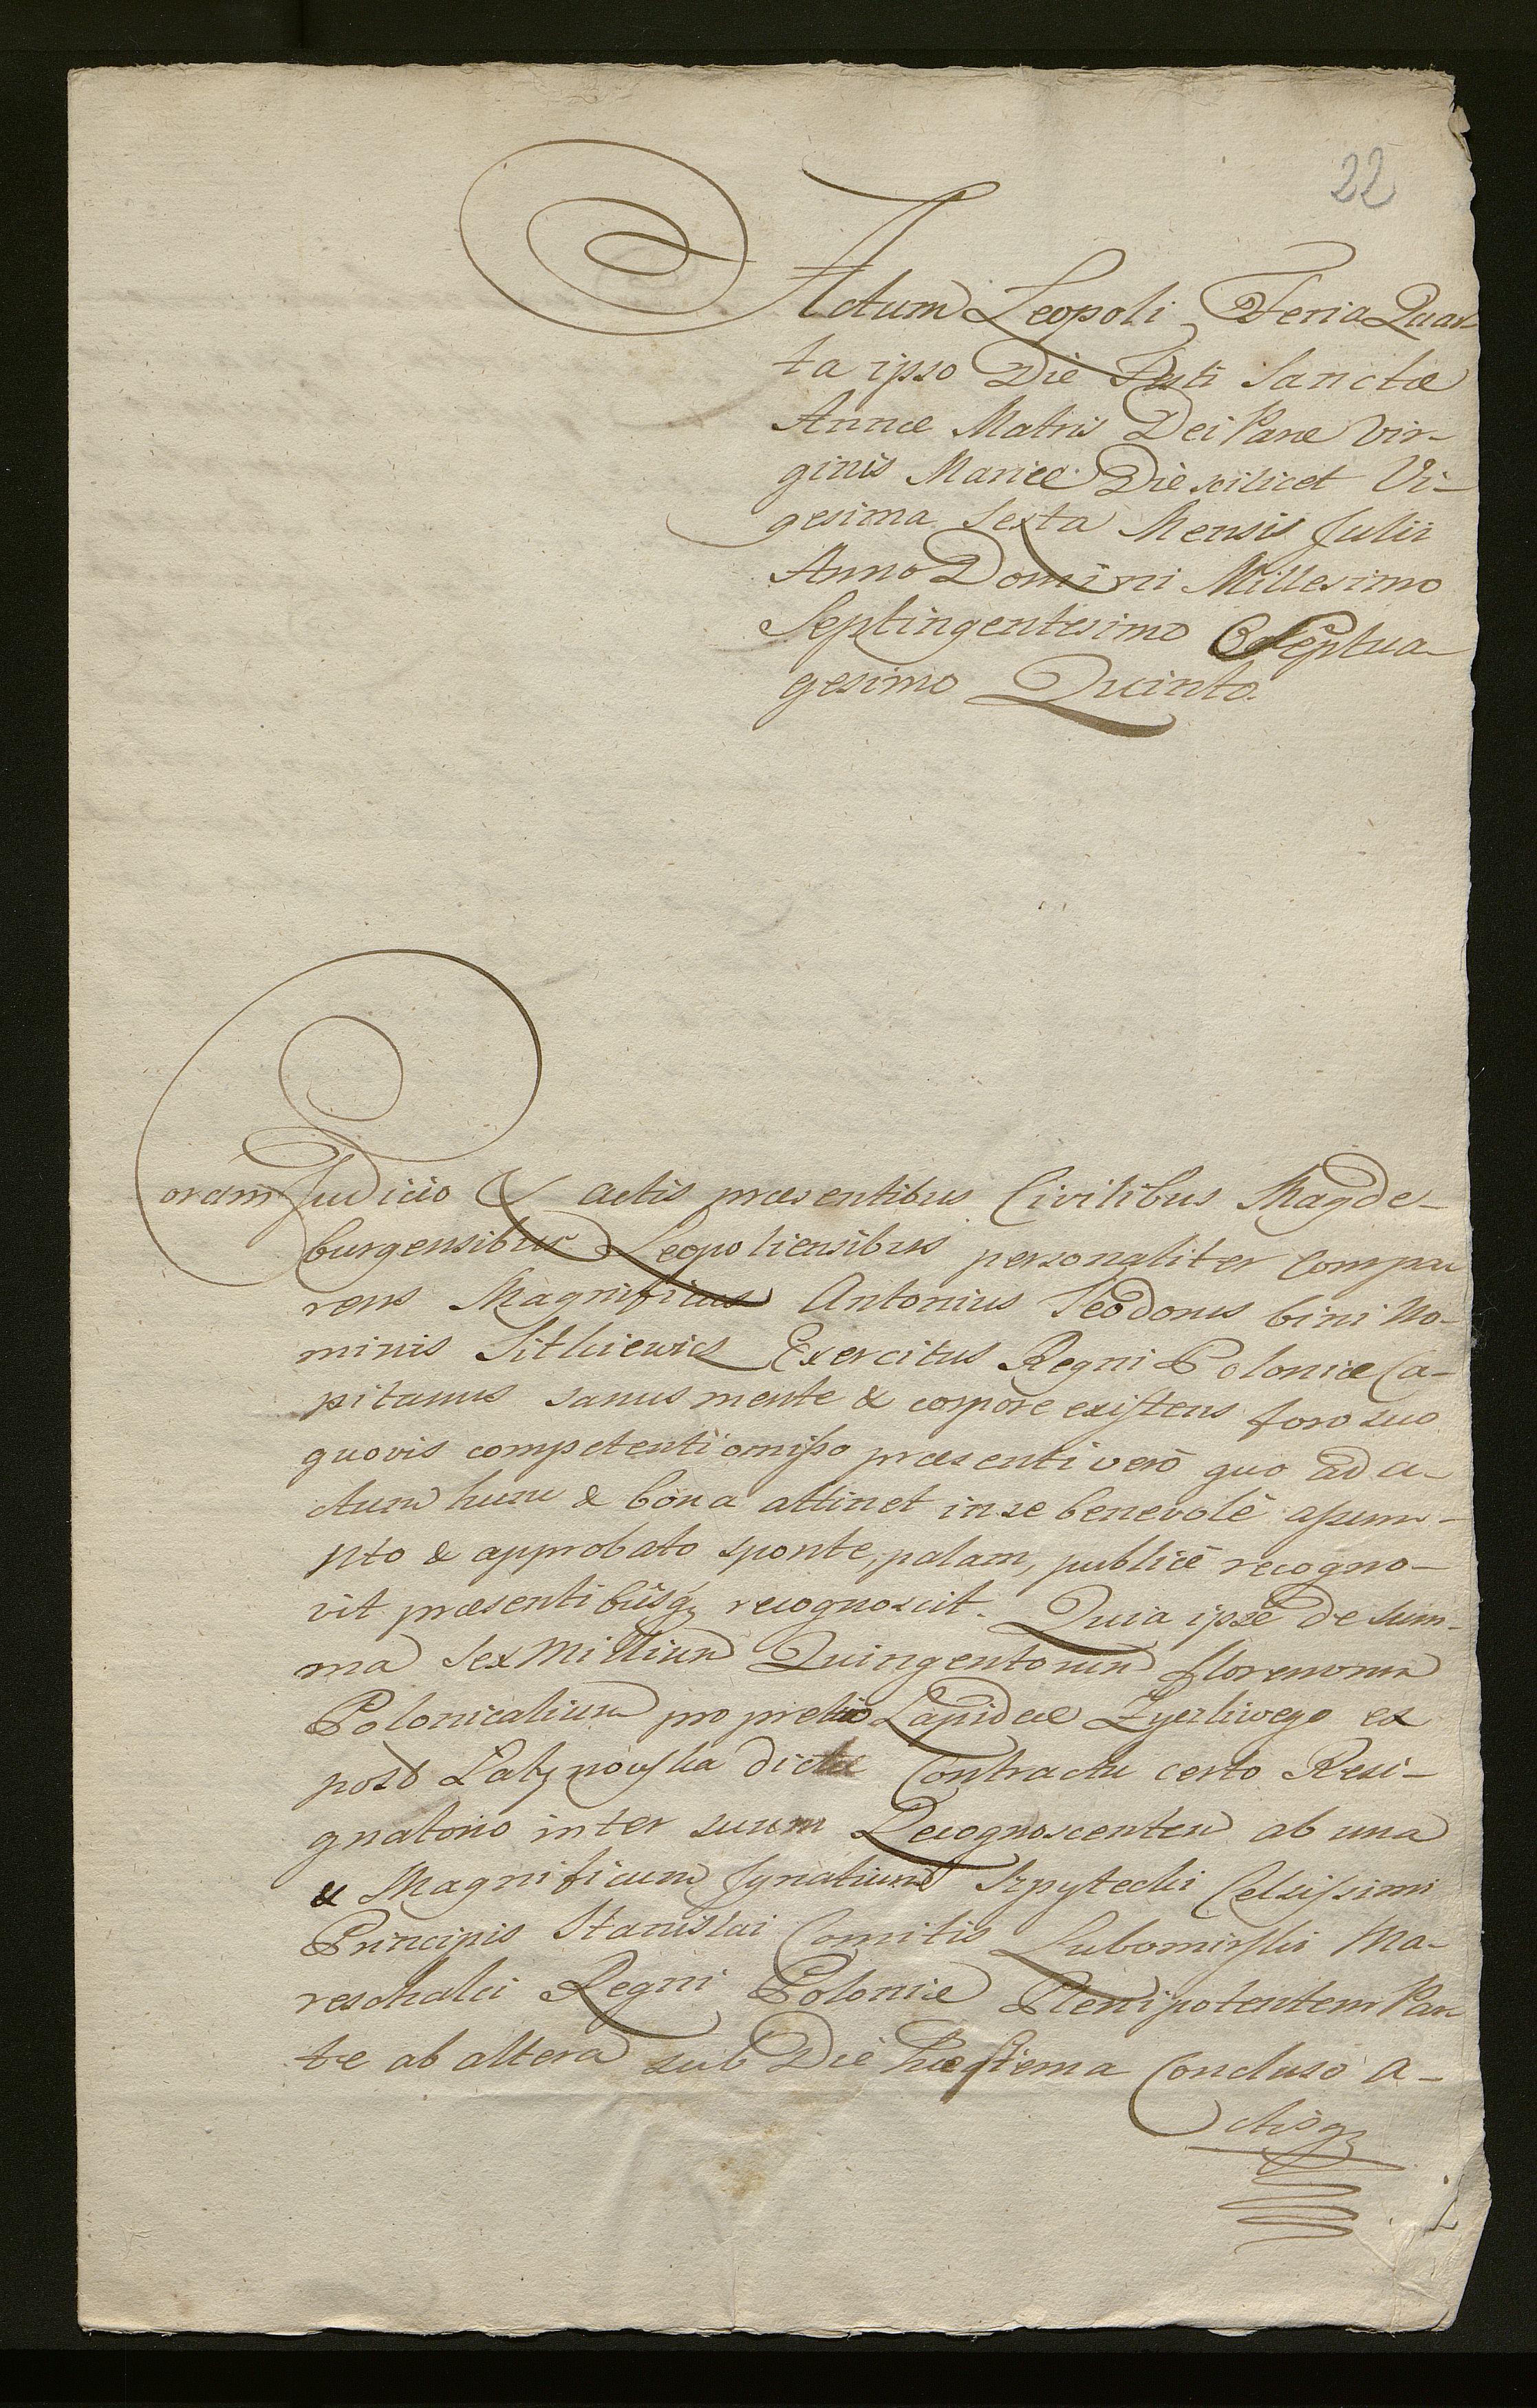 22
Actum Leopoli Feria Quar-
ta ipso Die Festi Sanctæ
Annæ Matris Dei Paræ Vir-
ginis Mariæ Die scilicet Vi-
gesima Sexta Mensis Julii
Anno Domini Millesimo
Septingentesimo Septua-
gesimo Quinto.
Coram Judicio & actis præsentibus Civilibus Magde-
burgensibus Leopoliensibus personaliter Compa
rens Magnificus Antonius Teodorus bini No-
minis Sitkiewicz Exercitus Regni Poloniæ Ca-
pitanus sanus mente & corpore existens foro suo
quovis competenti omisso præsenti verò quo ad a-
ctum hunc & bona attinet in se benevolè assum-
pto & approbato sponte, palam, publicè recogno-
vit præsentibusq; recognoscit. Quia ipse de Sum-
ma Sex Millium Quingentorum florenorum
Polonicalium pro pretio Lapideæ ex
post dictæ Contractu certo Resi-
gnatorio inter suum Recognoscentem ab una
& Magnificum Ignatium Szpytecki Celsissimi
Principis Stanislai Comitis Lubomirski Ma-
reschalci Regni Poloniæ Plenipotentem Par
te ab altera sub Die hæsterna Concluso a-
ctisq;